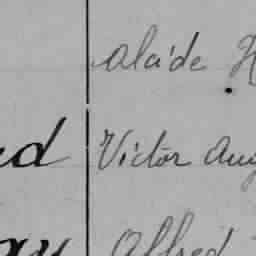 Alaïde H
rd Victor Aug
ay Alfred